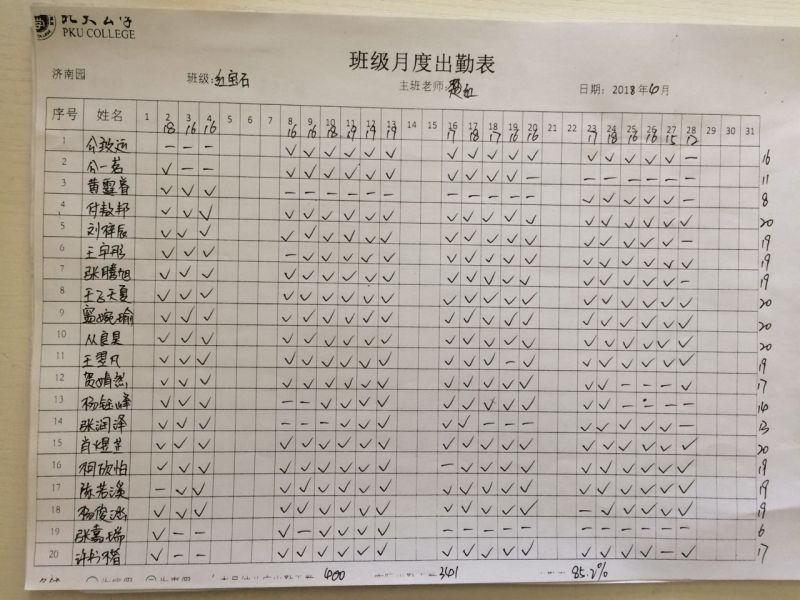 北大公学
PKU COLLEGE
班级月度出勤表
济南园 班级: 红宝石 主班老师: 日期: 2018年6月
序号 姓名 1 2 3 4 5 6 7 8 9 10 11 12 13 14 15 16 17 18 19 20 21 22 23 24 25 26 27 28 29 30 31
18 16 16 16 16 18 19 19 19 17 18 17 16 16 17 18 16 16 15 12
1 16
2 公一茗 11
3 8
4 付敖邦 20
5 刘梓辰 19
6 王宇彤 19
7 张腾旭 19
8 王飞天夏 20
9 窦婉瑜 20
10 从良昊 20
11 王翌凡 19
12 贺婧然 17
13 杨钰峰 14
14 张润泽 13
15 肖煜芷 20
16 柯欣怡 19
17 陈若溪 19
18 杨俊泓 19
19 张嘉瑞 6
20 17
400 341 85.2%